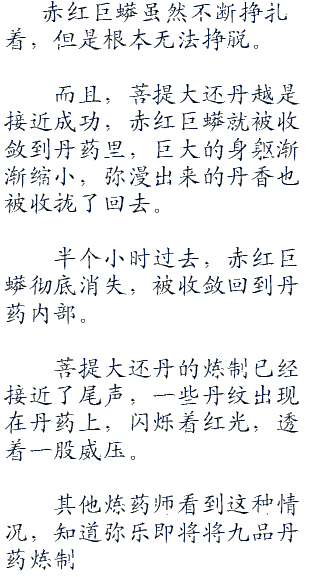 赤红巨蟒虽然不断挣扎
着，但是根本无法挣脱。
而且，菩提大还丹越是
接近成功，赤红巨蟒就被收
敛到丹药里，巨大的身躯渐
渐缩小，弥漫出来的丹香也
被收拢了回去。
半个小时过去，赤红巨
蟒彻底消失，被收敛回到丹
药内部。
菩提大还丹的炼制已经
接近了尾声，一些丹纹出现
在丹药上，闪烁着红光，透
着一股威压。
其他炼药师看到这种情
况，知道弥乐即将将九品丹
药炼制